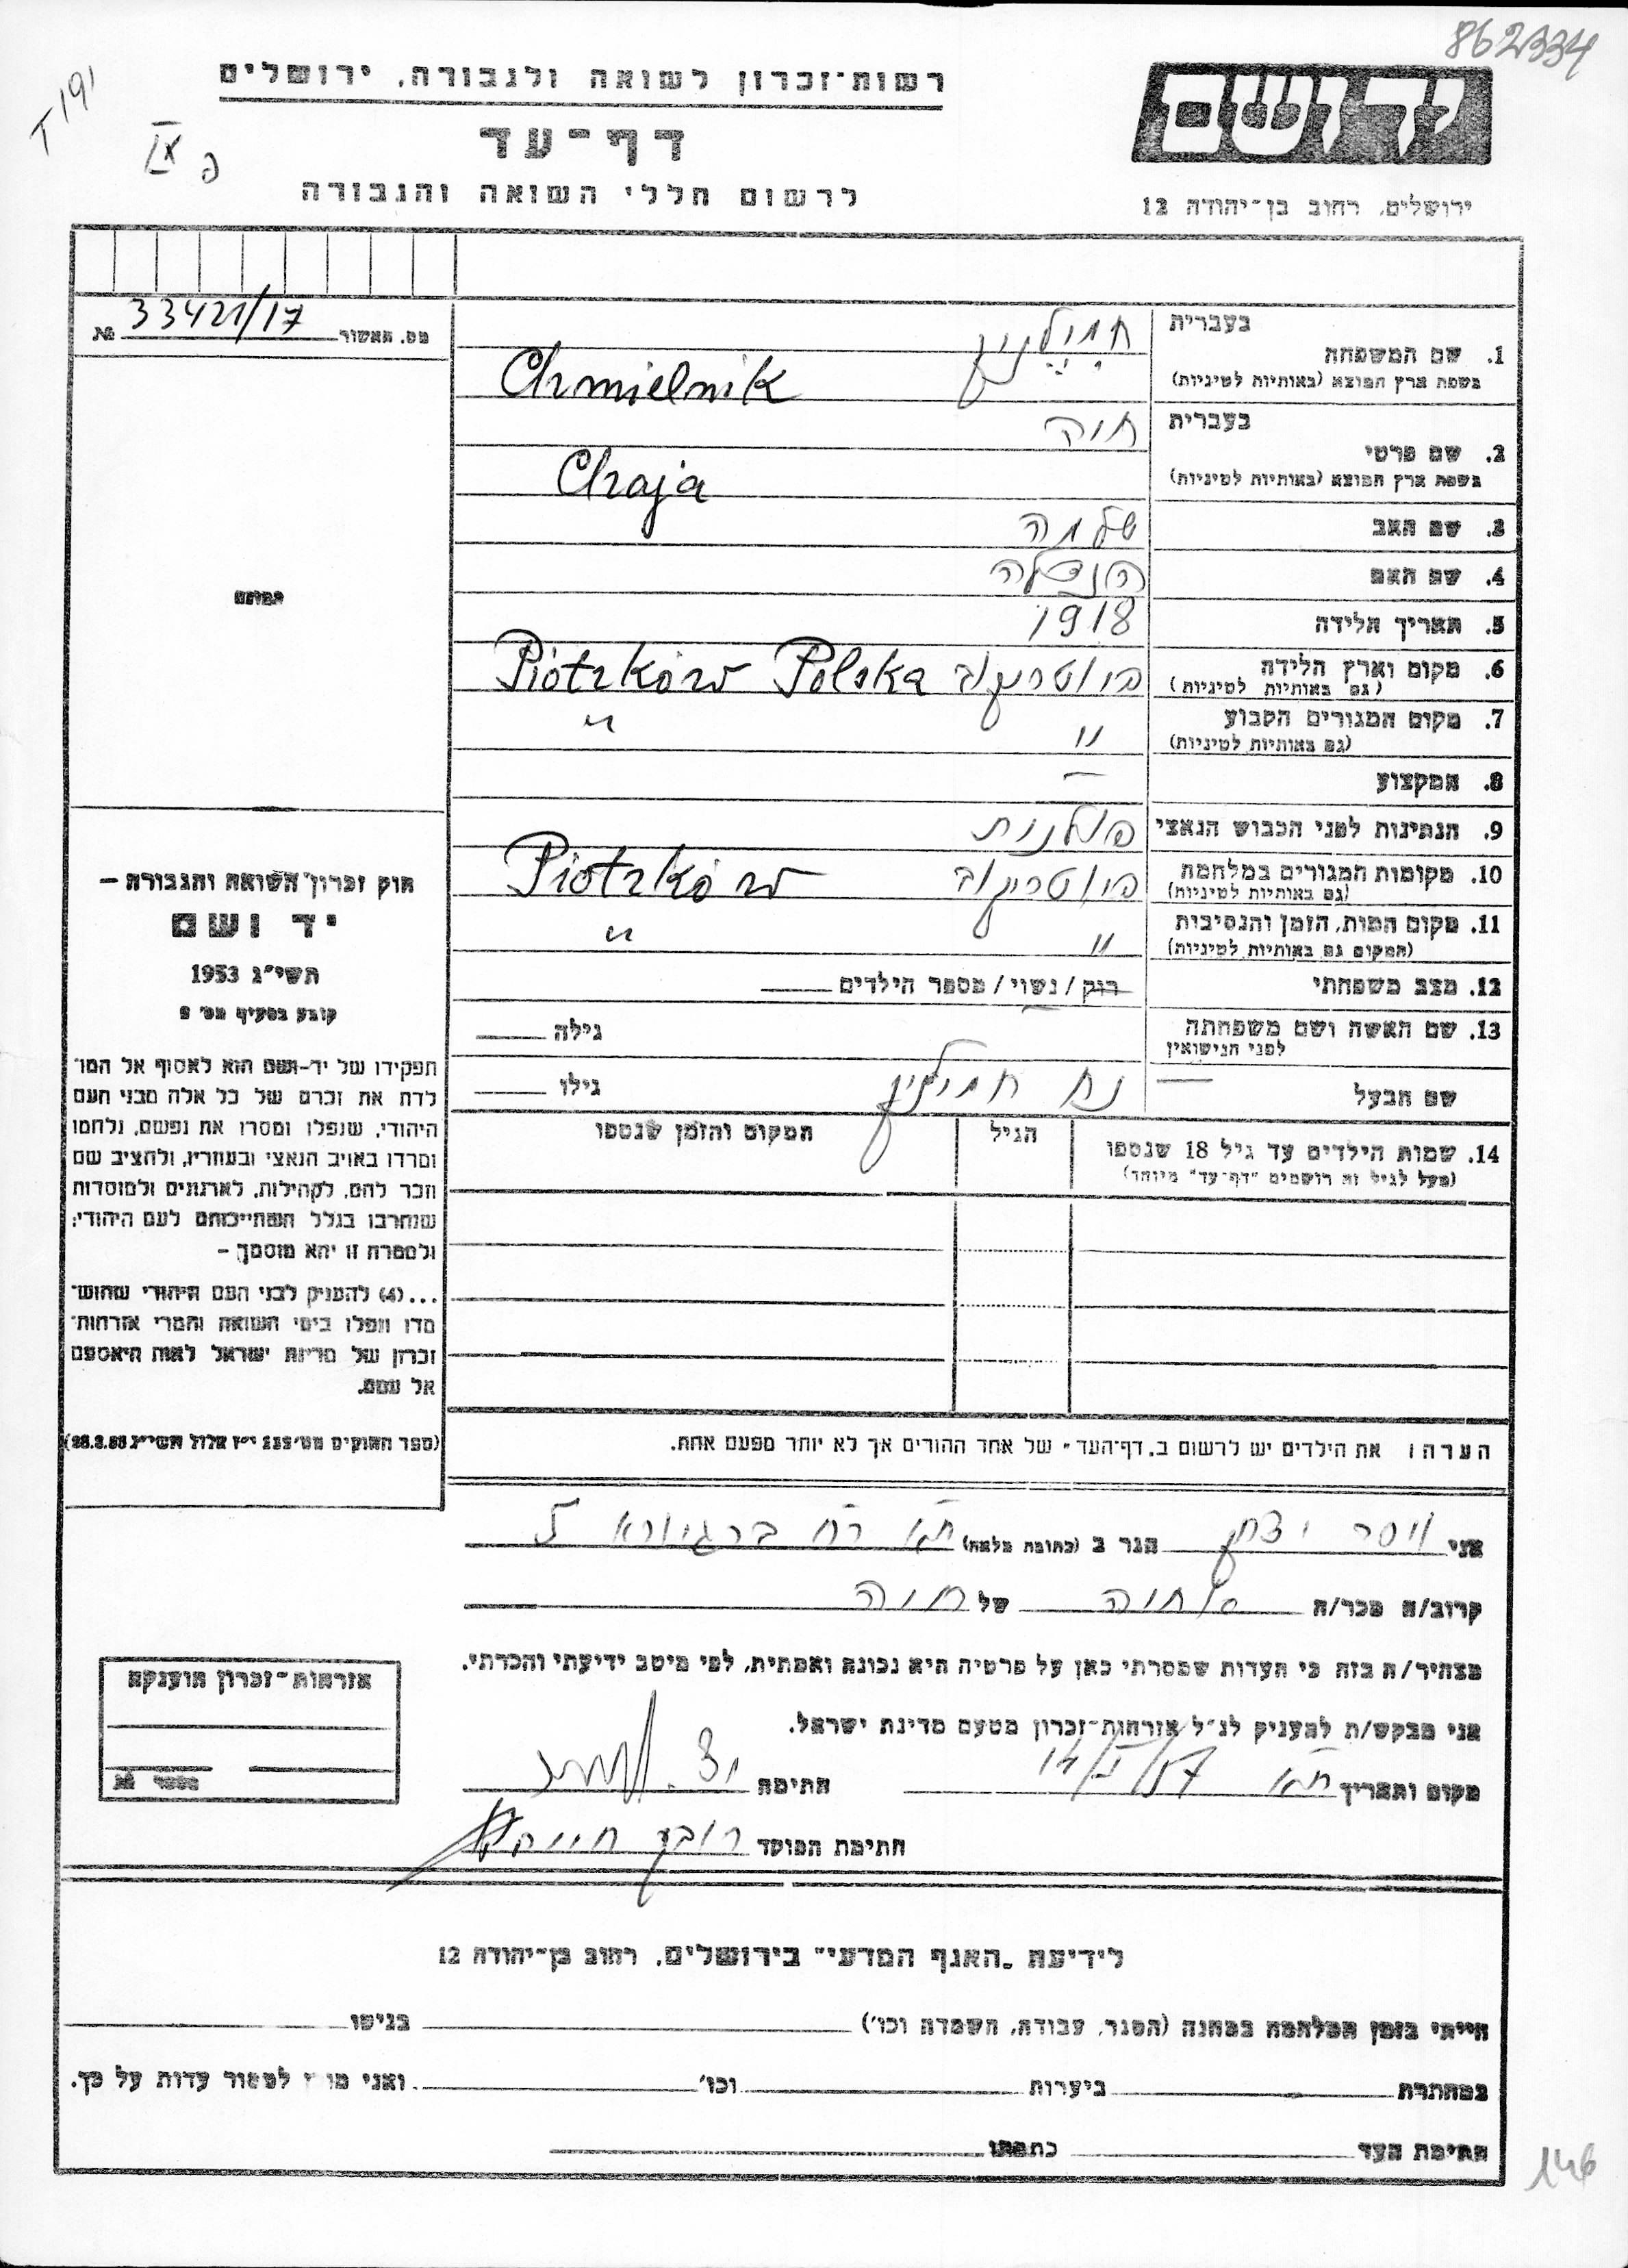 862334
T191
IX פ
יד ושם
ירושלים, רחוב בן-יהודה 12
רשות-זכרון לשואה ולגבורה, ירושלים
דף-עד
לרשום חללי השואה והגבורה
מס. האשור 33421/17 №
תמונה
1. שם המשפחה
בעברית חמילניק
בשפת ארץ המוצא (באותיות לטיניות) Chmielnik
2. שם פרטי
בעברית חיה
בשפת ארץ המוצא (באותיות לטיניות) Chaja
3. שם האב שלמה
4. שם האם
5. תאריך הלידה 1918
6. מקום וארץ הלידה (גם באותיות לטיניות) פיוטרקוב Piotrków Polska
7. מקום המגורים הקבוע (גם באותיות לטיניות) " "
8. המקצוע —
9. הנתינות לפני הכבוש הנאצי פולנית
10. מקומות המגורים במלחמה (גם באותיות לטיניות) פיוטרקוב Piotrków
11. מקום המות, הזמן והנסיבות (המקום גם באותיות לטיניות) " "
12. מצב משפחתי רווק / נשוי / מספר הילדים
13. שם האשה ושם משפחתה לפני הנישואין — גילה
שם הבעל נח חמילניק גילו
14. שמות הילדים עד גיל 18 שנספו (מעל לגיל זה רושמים "דף-עד" מיוחד)
הגיל
המקום והזמן שנספו
הערה: את הילדים יש לרשום ב"דף-העד" של אחד ההורים אך לא יותר מפעם אחת.
חוק זכרון השואה והגבורה —
יד ושם
תשי"ג 1953
קובע בסעיף מס'
תפקידו של יד-ושם הוא לאסוף אל המו-
לדת את זכרם של כל אלה מבני העם
היהודי, שנפלו ומסרו את נפשם, נלחמו
ומרדו באויב הנאצי ובעוזריו, ולהציב שם
וזכר להם, לקהילות, לארגונים ולמוסדות
שנחרבו בגלל השתייכותם לעם היהודי;
ולמטרה זו יהא מוסמך —
...(4) להעניק לבני העם היהודי שהוש-
מדו ונפלו בימי השואה והמרי אזרחות-
זכרון של מדינת ישראל לאות היאספם
אל עמם.
(ספר החוקים מס' 132 י"ז אלול תשי"ג 28.8.53)
אני ויסר יצחק הגר ב (כתובת מלאה) ת"א רח' ברגיורא 5
קרוב/ה מכר/ה של חיה
מצהיר/ה בזה כי העדות שמסרתי כאן על פרטיה היא נכונה ואמתית, לפי מיטב ידיעתי והכרתי.
אני מבקש/ת להעניק לנ"ל אזרחות-זכרון מטעם מדינת ישראל.
מקום ותאריך ת"א חתימה
חתימת הפוקד
אזרחות-זכרון הוענקה
מספר №
לידיעת "האגף המדעי" בירושלים, רחוב בן-יהודה 12
הייתי בזמן המלחמה במחנה (הסגר, עבודה, השמדה וכו') בגיטו
במחתרת ביערות וכו' ואני מוכן למסור עדות על כך.
חתימת העד כתבתו
146